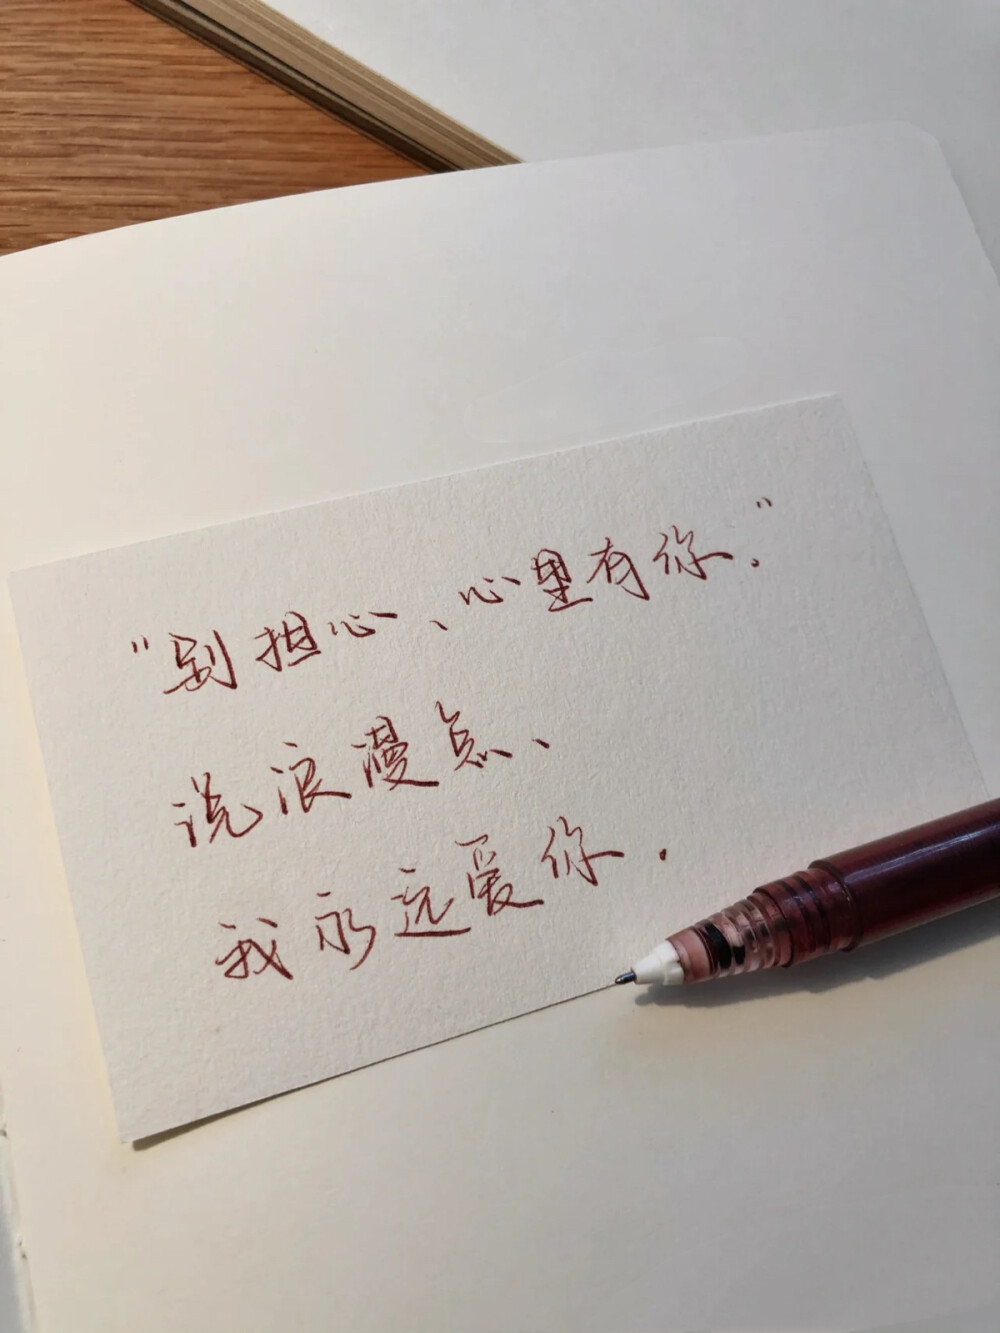 “别担心、心里有你.”
说浪漫点、
我永远爱你.